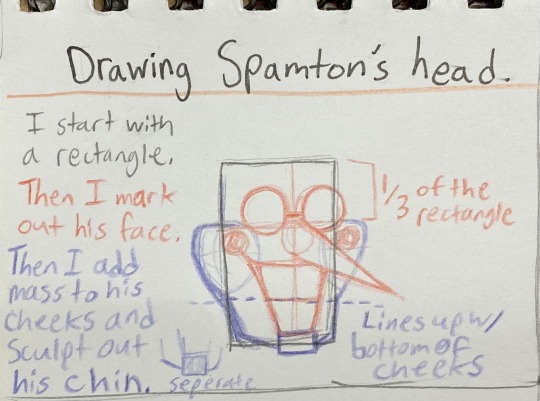 Drawing Spamton's head.
I start with
a rectangle.
Then I mark
out his face.
Then I add
mass to his
cheeks and
sculpt out
his chin.
seperate
1/3 of the
rectangle
Lines up w/
bottom of
cheeks